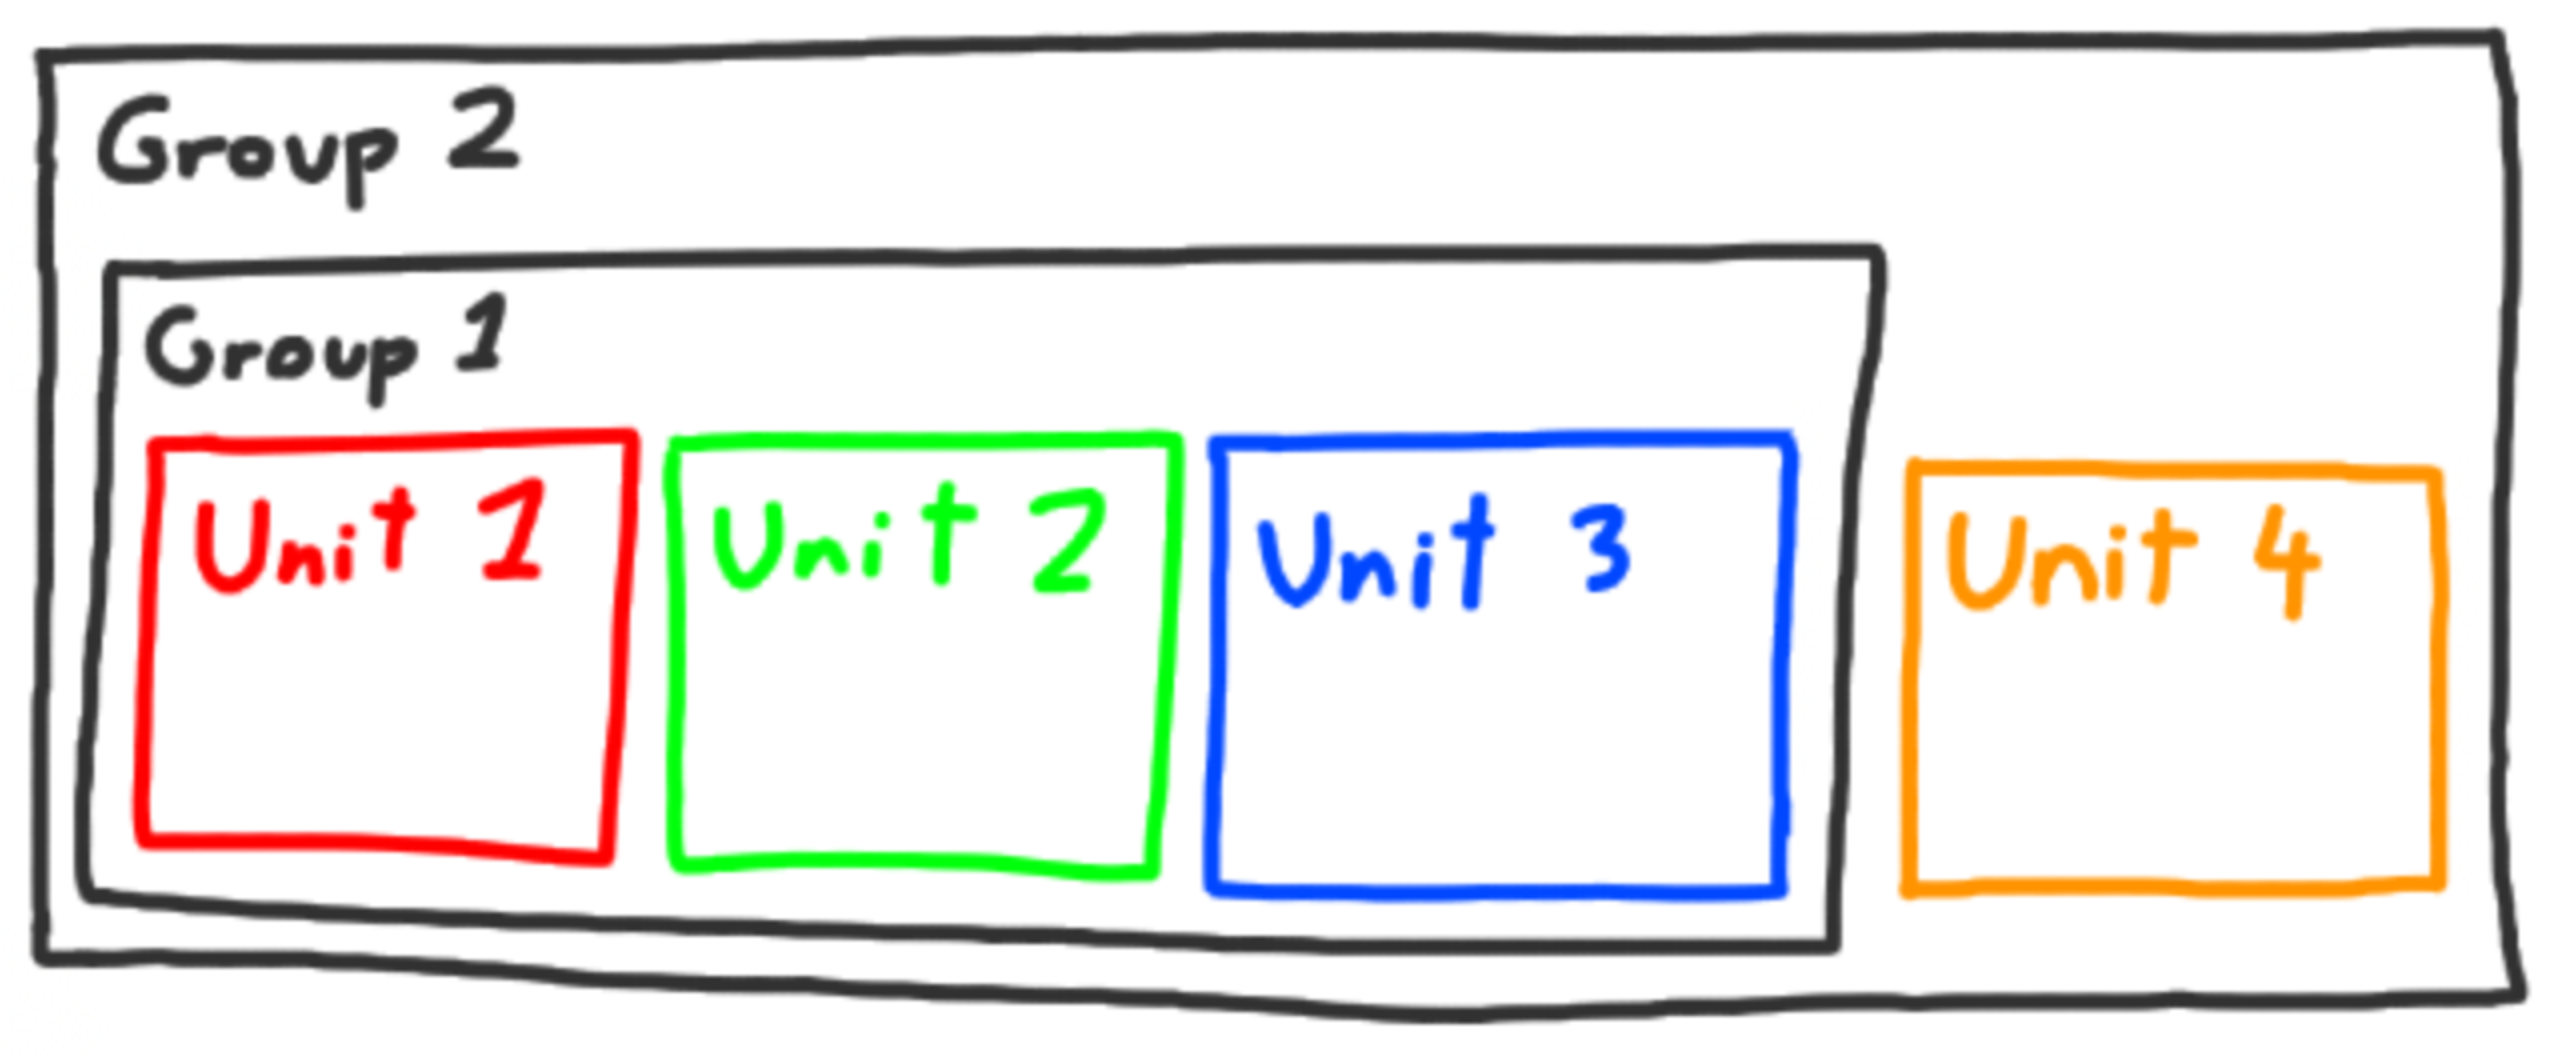 Group 2
Group 1
Unit 1
Unit 2
Unit 3
Unit 4